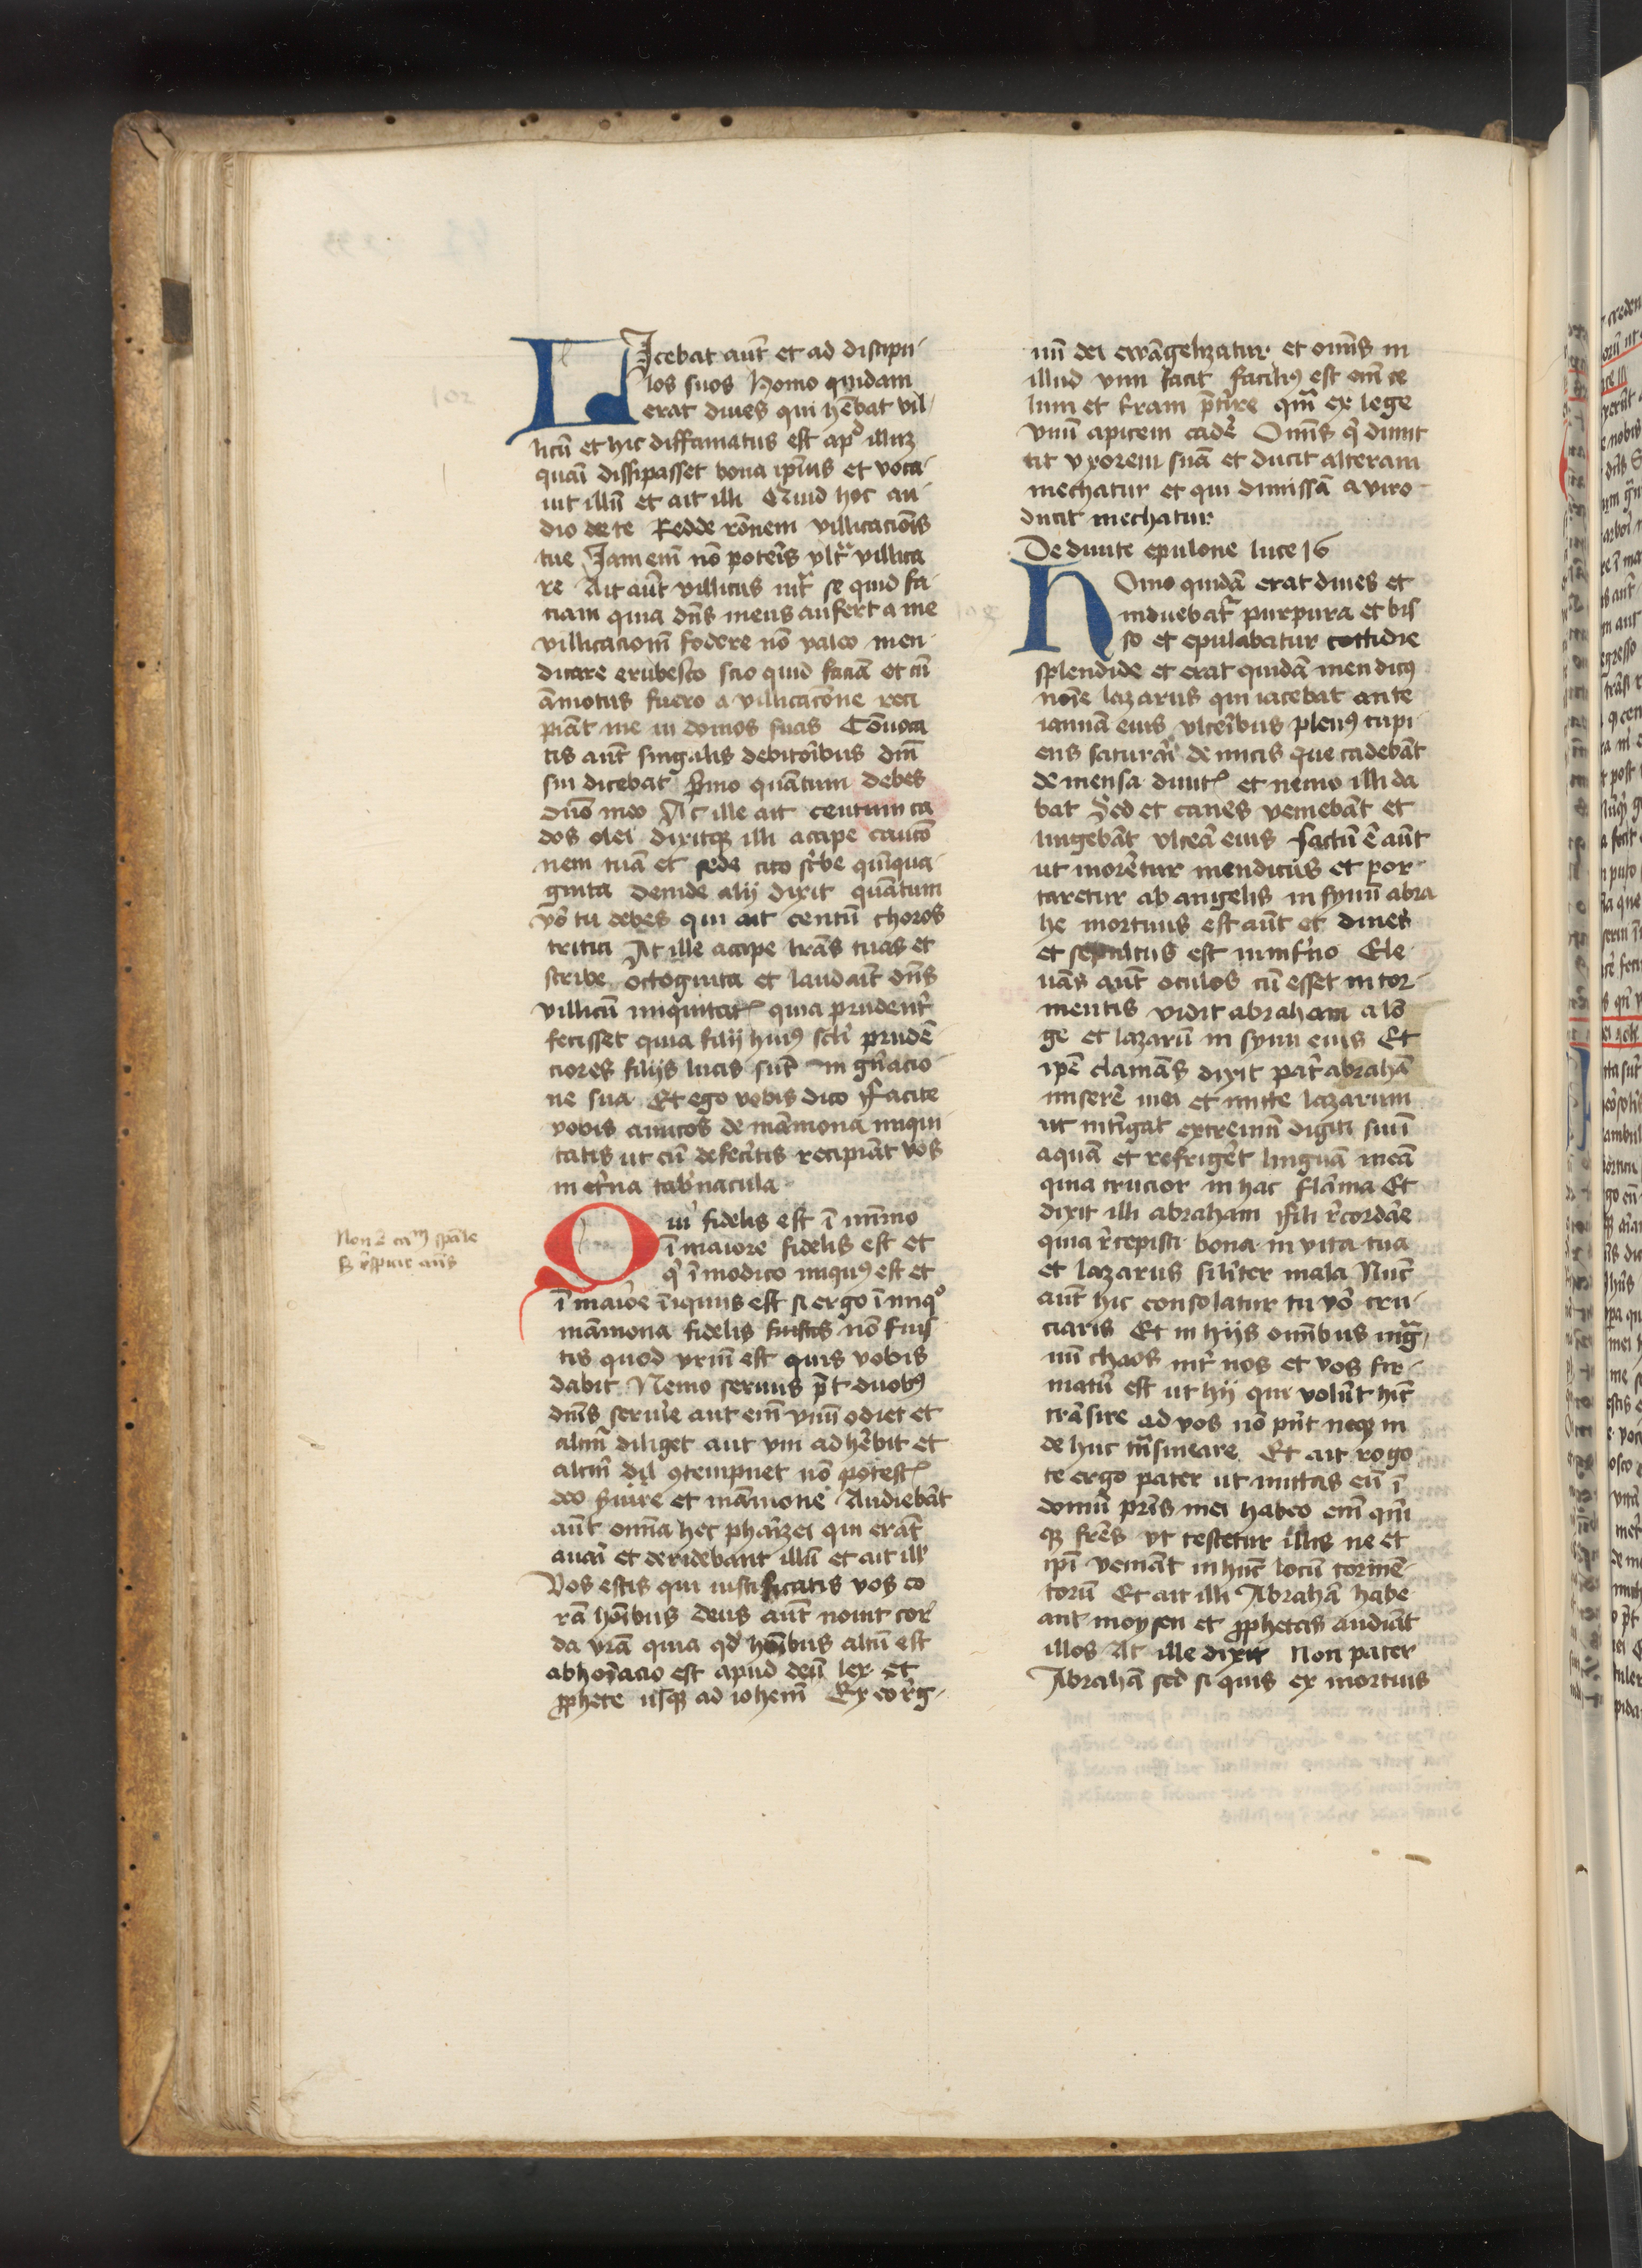 Icebat aut̄ et ad discipu-
los suos Homo quidam
erat diues qui hēbat vil-
licū et hic diffamatus est apᵈ illuȝ
quasi dissipasset bona ip̄ius et voca-
uit illū et ait illi Quid hoc au-
dio de te Redde rōnem villicaciōis
tue Iam em̄ nō poteris vltᵃ villica
re Ait aūt villicus intᵃ se quid fa-
ciam quia dn̄s meus aufert a me
villicacionē fodere nō valeo men-
dicare erubesco scio quid faciā et cū
āmotus fuero a villicacōne reci
piāt me in domos suas Cōuoca
tis aūt singulis debitoribus dn̄i
sui dicebat pͥmo quātum debes
dn̄o meo At ille ait centum ca
dos olei dixitqꝫ illi accipe caucō
nem tuā et sede cito scͥbe quīqua-
ginta deinde alij dixit quātum
vo͛ tu debes qui ait centū choros
tritici At ille accipe lrās tuas et
scribe octoginta et laudauit dn̄s
villicū iniquitatꝭ quia prudenter
fecisset quia filij huiꝰ scl̄i prudē
ciores filijs lucis sūt in gn̄acio-
ne sua Et ego vobis dico Facite
vobis amicos de māmona iniqui
tatis ut cū defecͥtis recipiāt vos
in et͛na tab͛nacula
Quͥ fidelis est ī mīmo
ī maiore fidelis est et
qͥ ī modico iniquꝰ est et
ī maiōe īiquus est si ergo ī iniqͦ
māmona fidelis fuistis nō fuis
tis quod vrm̄ est quis vobis
dabit Nemo seruus pt̄ duobꝰ
dn̄is seruire aut em̄ vnū odiet et
altm̄ diliget aut vni adhēbit et
altm̄ dil ꝯtempnet nō potestꝭ
deo s͛uire et māmone Audiebāt
aūt omīa hec pharizei qui erāt
auari et deridebant illū et ait illͥ
Vos estis qui iustificatis vos co
rā hoībus deus aūt nouit cor
da vrā quia qd̓ hoībus altū est
abhoīacio est apud deū lex et
ꝓphete usqꝫ ad iohem̄ Ex eo rͤg-
Non ē caᵐ spāle
nū dei ewāgelizatur et omīs in
illud vim facit faciliꝰ est em̄ ce
lum et t͛ram p̄t͛ire qm̄ ex lege
vnū apicem cad͛e Omīs qͥ dimit
tit vxorem suā et ducit alteram
mechatur et qui dimissā a viro
ducit mechatur
De diuite epulone luce 16
HOmo quidā erat diues et
induebatᵉ purpura et bis
so et epulabatur cottidie
splendide et erat quidā mendicꝰ
noīe lazarus qui iacebat ante
ianuā eius vlceribus plenꝰ cupi
ens saturari de micis que cadebāt
de mensa diuitꝭ et nemo illi da
bat Sed et canes veniebāt et
lingebāt vlcea eius factū ē aūt
ut moretur mendicus et por-
taretur ab angelis in synū abra
he mortuus est aūt et diues
et sepultus est in inf͛no Ele-
uās aūt oculos cū esset in tor-
mentis vidit abraham a lō
ge et lazarū in synu eius Et
ipē clamās dixit pat͛ abrahā
miserē mei et mitte lazarum
ut intīgat extremū digiti sui ī
aquā et refriget linguā meā
quia crucior in hac flāma Et
dixit illi abraham Fili r͛cordāe
quia r͛cepisti bona in vita tua
et lazarus silīter mala Nūc
aūt hic consolatur tu vo͛ cru-
ciaris Et in hijs omībus mgᵃ-
nū chaos int͛ nos et vos fir-
matū est ut hij qui volūt hīc
trāsire ad vos nō pn̄t neqꝫ in
de huc tᵃnsmeare Et ait rogo
te ergo pater ut mittas eū ī
domū prīs mei habeo em̄ qīn
qꝫ frēs vt testetur illis ne et
ipī veniāt in hūc locū tormē-
torū Et ait illi Abrahā habe
ant moysen et ꝓphetas audiāt
illos At ille dixit Non pater
Abrahā sed si quis ex mortuis